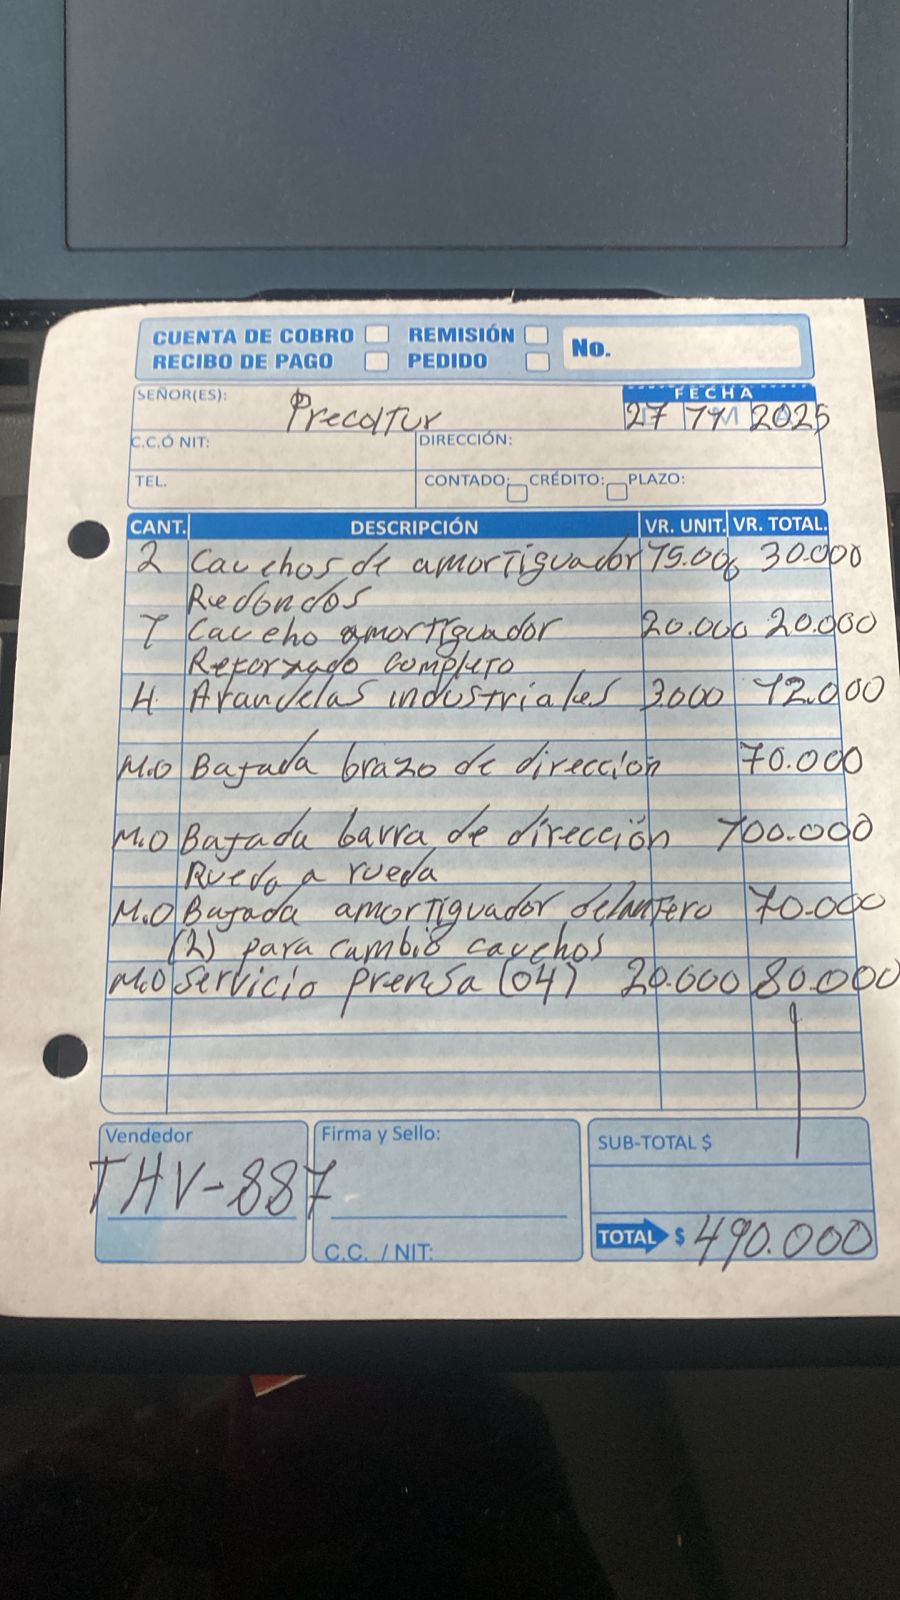 CUENTA DE COBRO REMISIÓN No.
RECIBO DE PAGO PEDIDO
SEÑOR(ES): Precoltur FECHA
27 11 2025
C.C.Ó NIT: DIRECCIÓN:
TEL. CONTADO: CRÉDITO: PLAZO:
CANT. DESCRIPCIÓN VR. UNIT. VR. TOTAL.
2 Cauchos de amortiguador 15.000 30.000
Redondos
1 Caucho amortiguador 20.000 20.000
Reforzado completo
4 Arandelas industriales 3.000 12.000
M.O Bajada brazo de dirección 70.000
M.O Bajada barra de dirección 100.000
Rueda a rueda
M.O Bajada amortiguador delantero 70.000
(2) para cambio cauchos
M.O Servicio prensa (04) 20.000 80.000
Vendedor Firma y Sello: SUB-TOTAL $
THV-887
C.C. / NIT: TOTAL $ 490.000